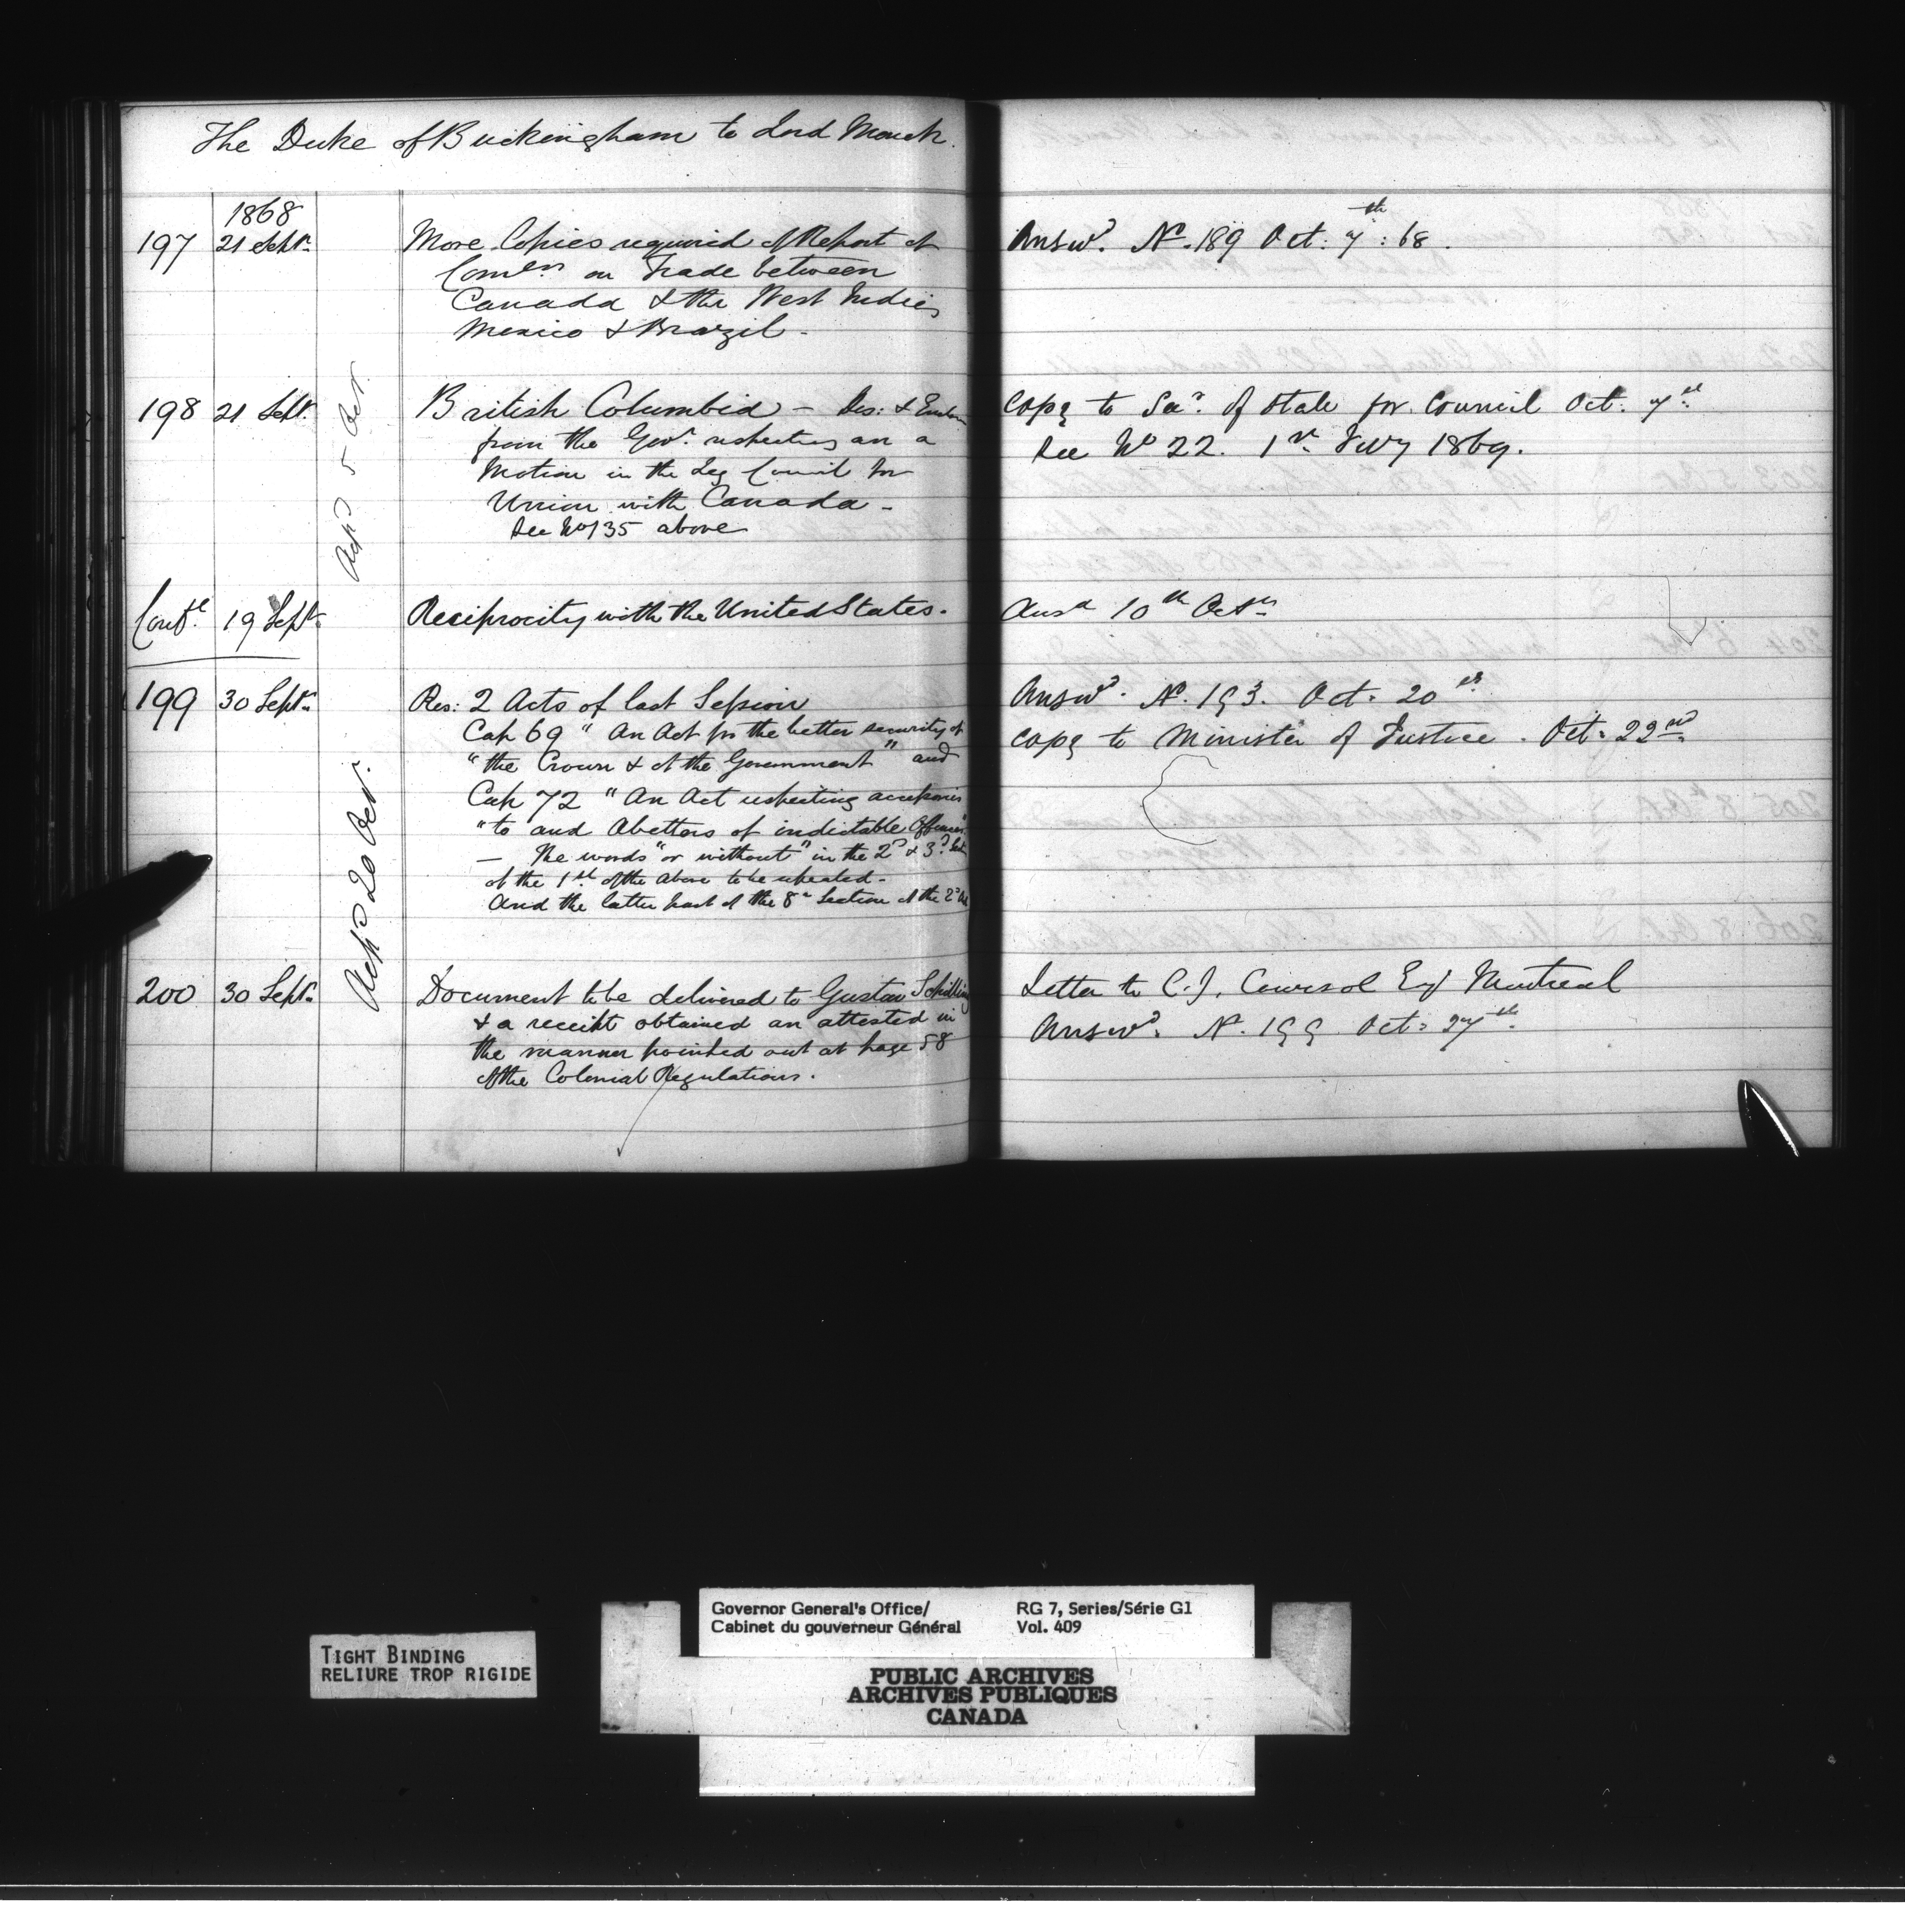 The Duke of Buckingham to Lord Monck.
1868
197 21 Septr. More Copies required of Report of Answd. No. 189 Oct: 7th: 68.
Comers on Trade between
Canada & the West Indies
Mexico & Brazil -
Ackd 5 Oct.
198 21 Septr. British Columbia - Des: & Enclo Copy to Secy. of State for Council Oct. 7th.
from the Govr. respecting an a See No 22. 1st Feby 1869.
Motion in the Leg Council for
Union with Canada -
See No 135 above
Confl. 19 Septr. Reciprocity with the United States. Ansd 10th Octr
199 30 Septr. Res: 2 Acts of last Session Answd. No. 193. Oct. 20th
Cap 69 "An Act for the better security of Copy to Minister of Justice. Oct. 22nd.
"the Crown & of the Government" and
Cap 72 "An Act respecting accessories
"to and Abettors of indictable Offences"
— The words "or without" in the 2d & 3d Sec
of the 1st of the above to be repealed -
And the latter part of the 8th Section of the 2d
Ackd 20 Oct.
200 30 Septr. Document to be delivered to Gustav Schilling Letter to C.J. Coursol Esq Montreal
& a receipt obtained an attested in Answd. No. 199 Oct. 27th.
the manner pointed out at page 58
of the Colonial Regulations.
Governor General's Office/ RG 7, Series/Série G1
Cabinet du gouverneur Général Vol. 409
TIGHT BINDING
RELIURE TROP RIGIDE
PUBLIC ARCHIVES
ARCHIVES PUBLIQUES
CANADA